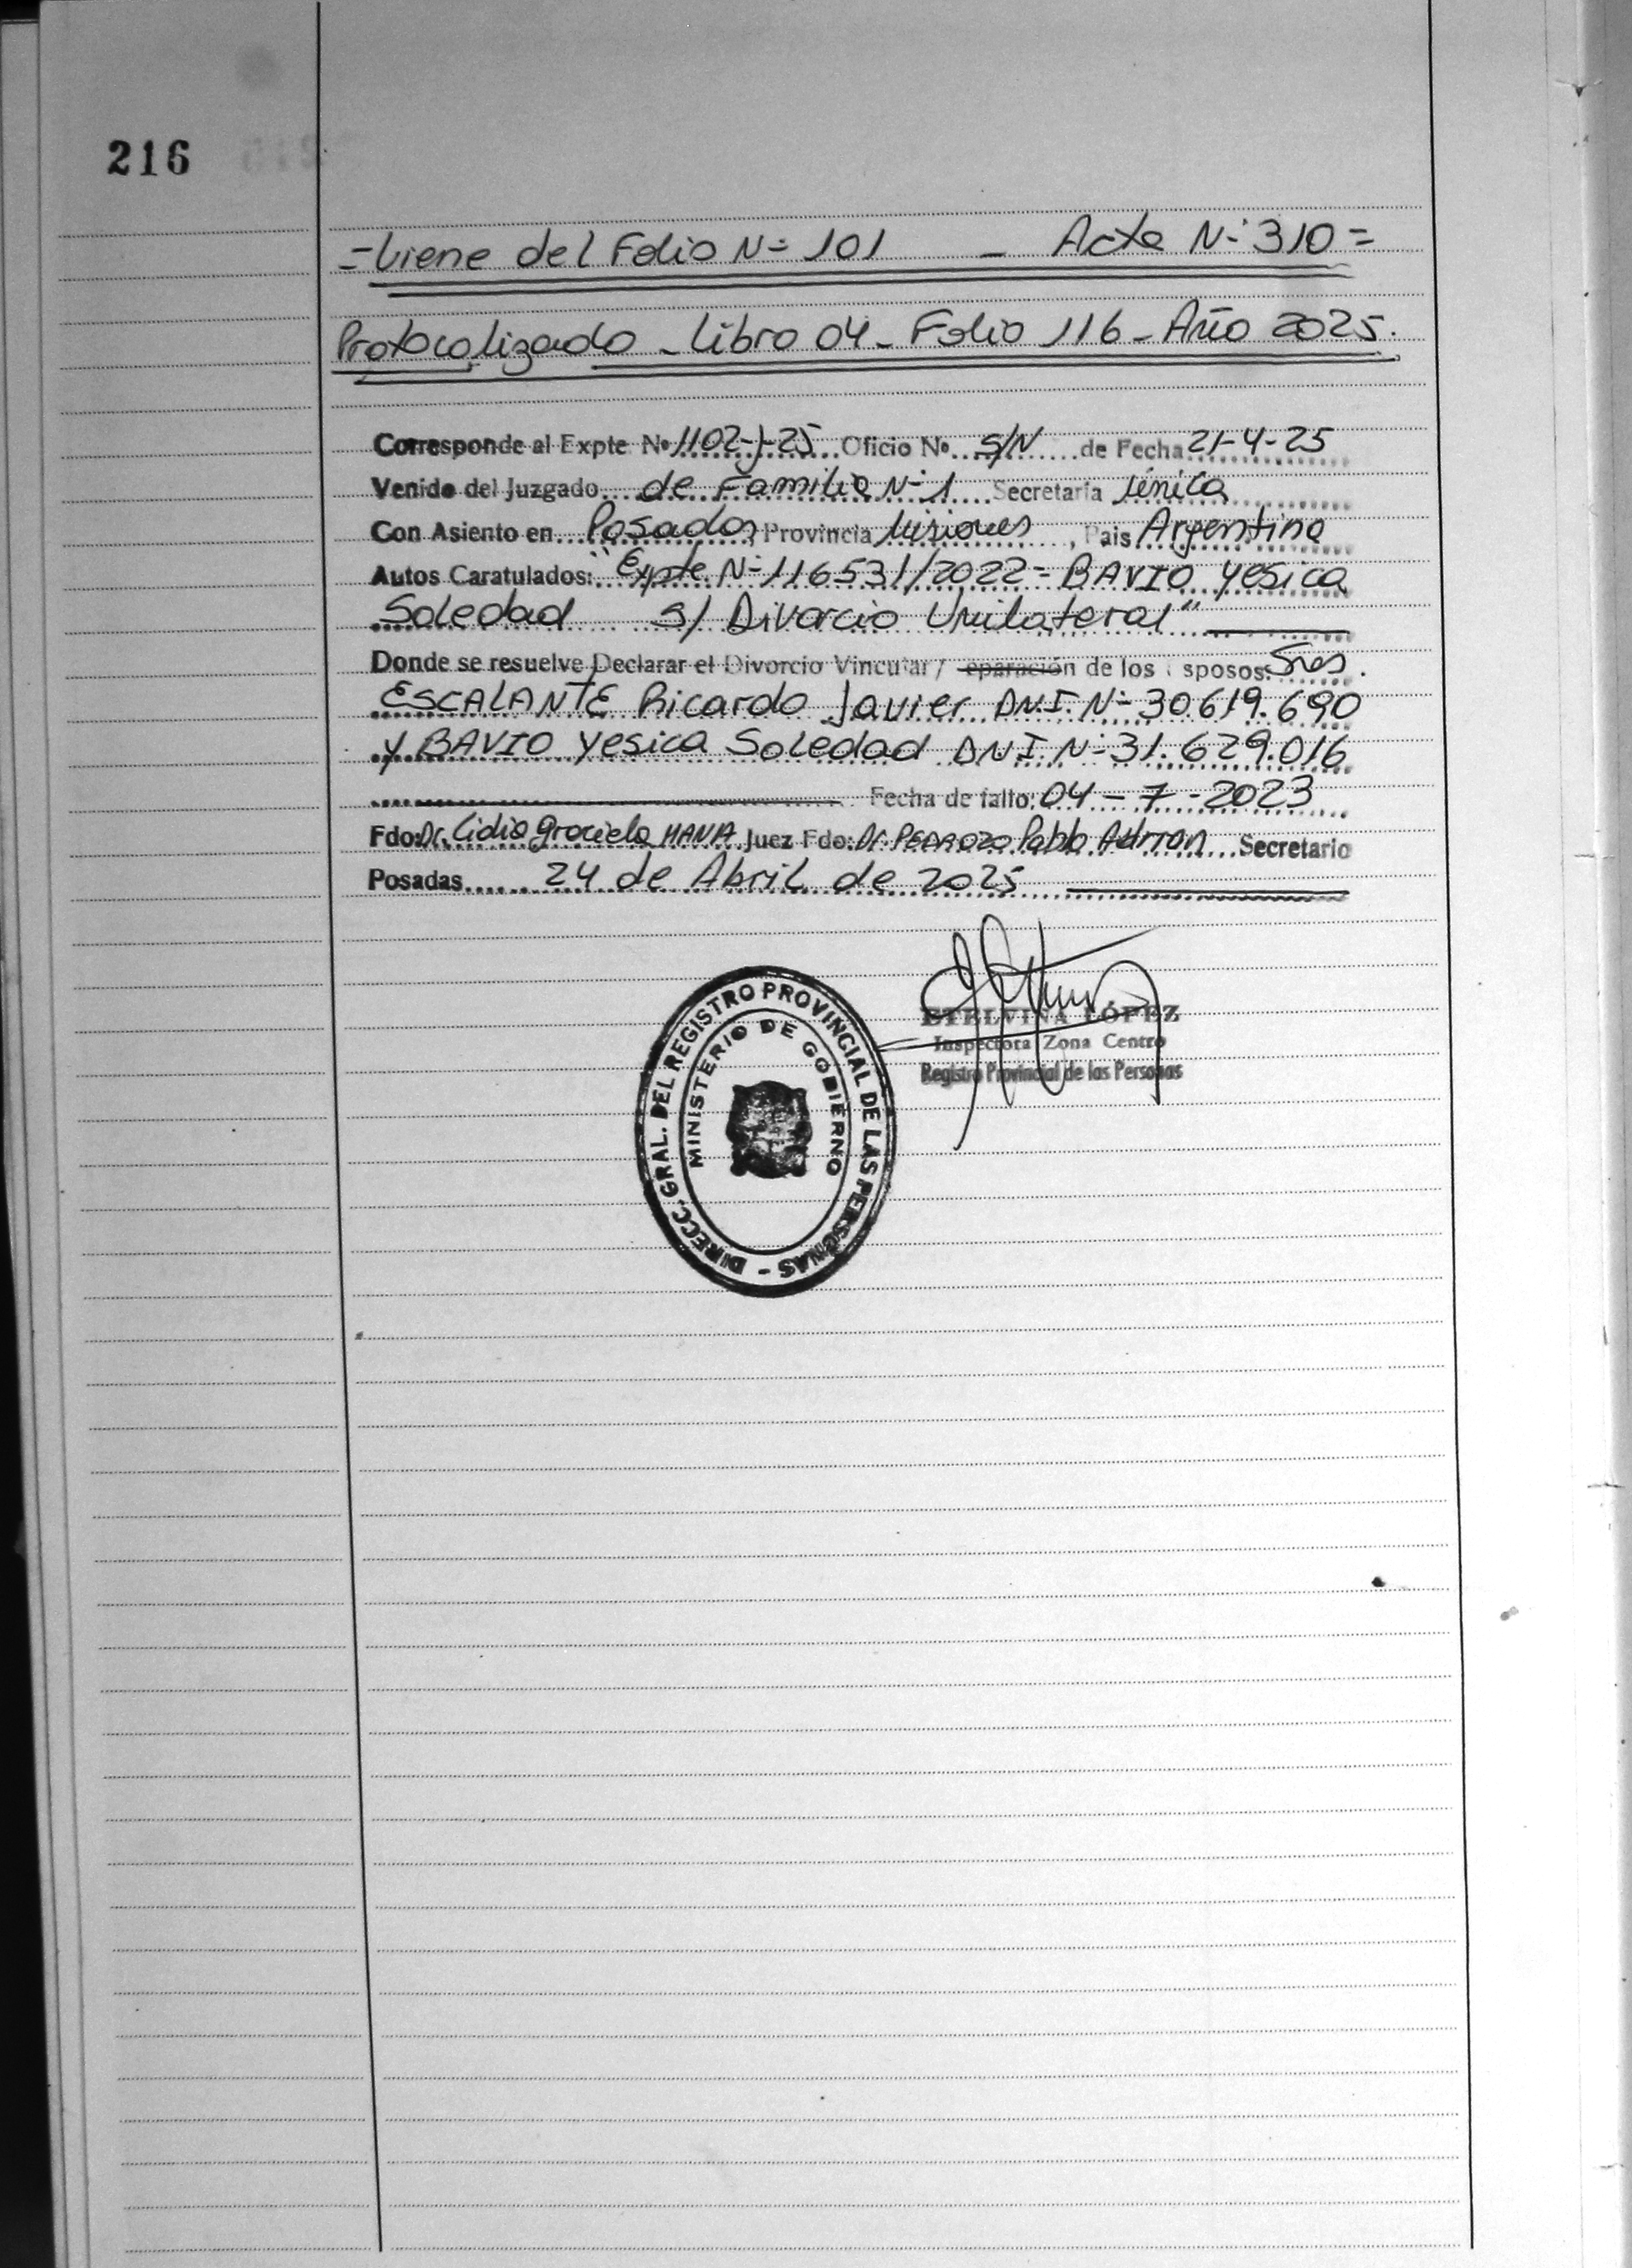 216
=Viene del Folio Nº 101 - Acta Nº 310=
Protocolizado - Libro 04 - Folio 116 - Año 2025.
Corresponde al Expte Nº 1102-J-25 Oficio Nº S/N de Fecha 21-4-25
Venido del Juzgado de Familia Nº 1 Secretaría Única
Con Asiento en Posadas, Provincia Misiones, Pais Argentina
Autos Caratulados: "Expte. Nº 116531/2022= BAVIO Yesica
Soledad S/ Divorcio Unilateral"
Donde se resuelve Declarar el Divorcio Vincular / eparación de los sposos: Sres.
ESCALANTE Ricardo Javier DNI. Nº 30.619.690
y BAVIO Yesica Soledad DNI Nº 31.629.016
Fecha de fallo: 04-7-2023
Fdo: Dr. Lidia Graciela Juez Fdo: Dr PEDROZO Pablo Adrian Secretario
Posadas 24 de Abril de 2025
DIRECC. GRAL. DEL REGISTRO PROVINCIAL DE LAS PERSONAS -
MINISTERIO DE GOBIERNO
ETELVINA LÓPEZ
Inspectora Zona Centro
Registro Provincial de las Personas